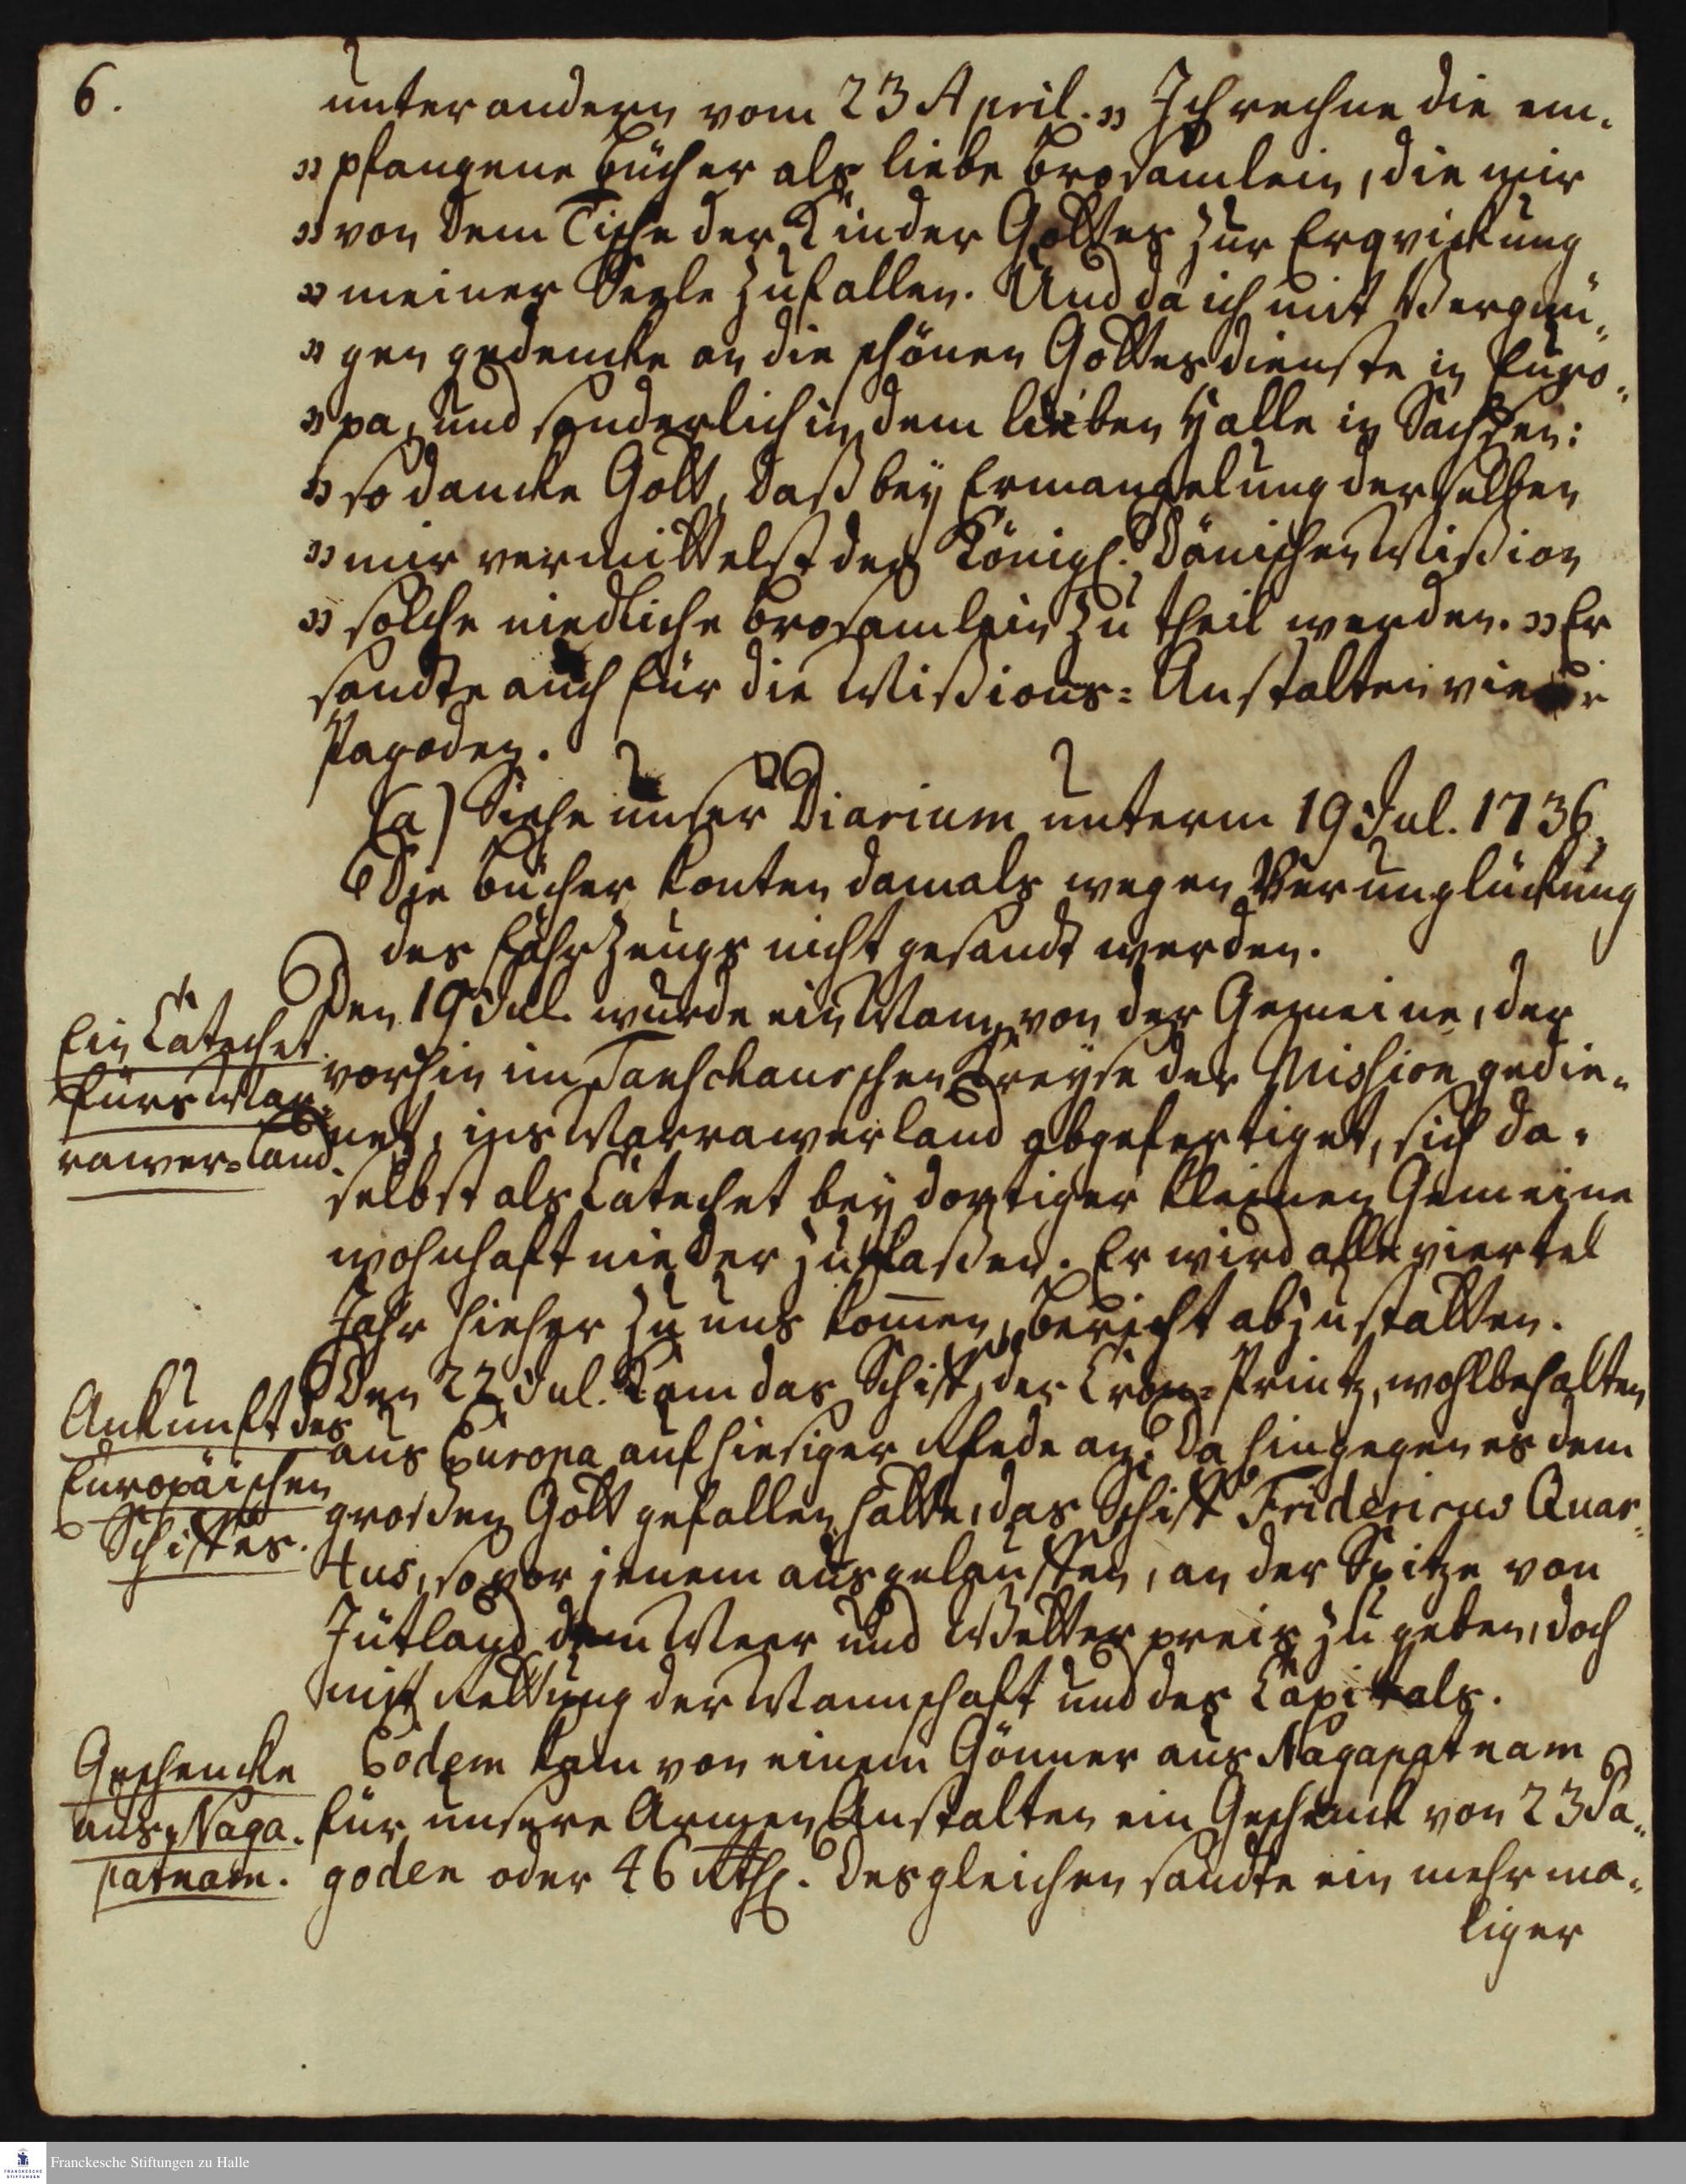 6.
unter andern vom 23 April. „Ich rechne die em-
„pfangene Bücher als liebe Brosamlein, die mir
„von dem Tische der Kinder Gottes zur Erqvickung
„meiner Seele zufallen. Und da ich mit Vergnü-
„gen gedencke an die schönen Gottesdienste in Euro-
„pa, und sonderlich in dem lieben Halle in Sachsen:
„so dancke Gott, daß bey Ermangelung derselben
„mir vermittelst der Königl. Dänischen Mißion
„solche niedliche Brosamlein zu theil werden. „Er
sandte auch für die Mißions-Anstalten vier
Pagoden.
(a) Siehe unser Diarium unterm 19 Jul. 1736.
Die Bücher konten damals wegen Verunglückung
des Fahrzeugs nicht gesandt werden.
Ein Catechet
fürs Mar-
rawer-land.
Den 19 Jul. wurde ein Mann von der Gemeine, der
vorhin im Tanschaurschen Kreyse der Mission gedie-
net, ins Marrawerland abgefertiget, sich da-
selbst als Catechet bey dortiger kleinen Gemeine
wohnhaft nieder zu laßen. Er wird alle viertel
Jahr hieher zu uns kom̅en, Bericht abzustatten.
Ankunft des
Europäischen
Schiffes.
Den 22 Jul. kam das Schiff, der Cron-Printz, wohlbehalten
aus Europa auf hiesiger Rhede an; da hingegen es dem
großen Gott gefallen hatte, das Schiff Fridericus Quar-
tus, so vor jenem ausgelauffen, an der Spitze von
Jütland dem Meer und Wetter preis zu geben, doch
mit Rettung der Mannschaft und des Capitals.
Geschencke
aus Naga-
patnam.
Eodem kam von einem Gönner aus Nagapatnam
für unsere Armen Anstalten ein Geschenck von 23 Pa-
goden oder 46 Rthl. Desgleichen sandte ein mehrma-
liger
Franckesche Stiftungen zu Halle